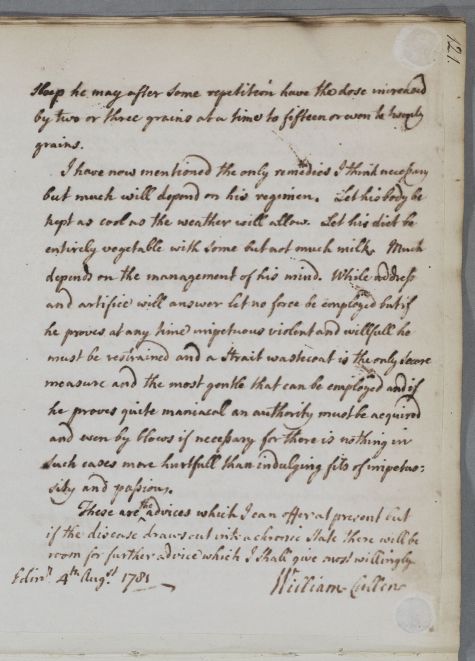 121.
sleep he may after some repetition have the dose increased
by two or three grains at a time to fifteen or even to twenty
grains.
I have now mentioned the only remedies I think necessary
but much will depend on his regimen. Let his body be
kept as cool as the weather will allow. Let his diet be
entirely vegetable with some but not much milk. Much
depends on the management of his mind. While address
and artifice will answer let no force be employed but if
he proves at any time impetuous violent and willfull he
must be restrained and a strait wastecoat is the only secure
measure and the most gentle that can be employed and if
he proves quite maniacal an authority must be acquired
and even by blows if necessary for there is nothing in
such cases more hurtfull than indulging fits of impetuo:
sity and passion.
These are the advices which I can offer at present but
if the disease draws out into a chronic state there will be
room for further advice which I shall give most willingly.
Edinr. 4th Augst. 1781 William Cullen